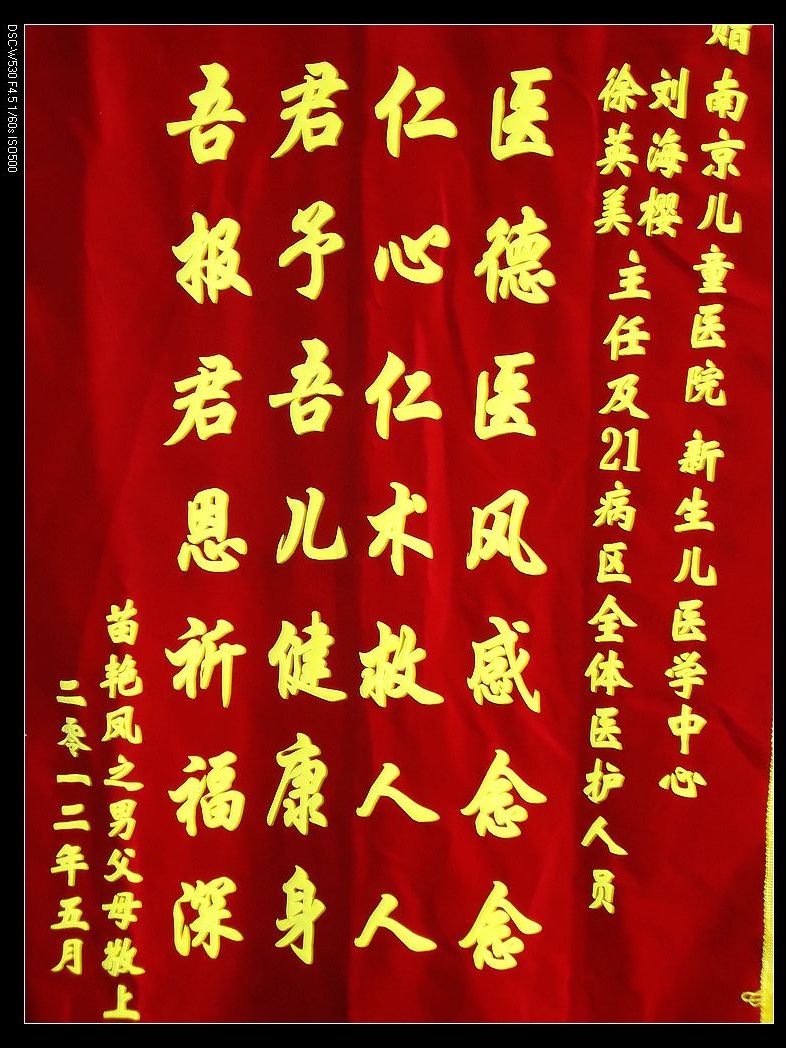 赠南京儿童医院 新生儿医学中心
刘海樱
徐英美主任及21病区全体医护人员
医德医风感念念
仁心仁术救人人
君予吾儿健康身
吾报君恩祈福深
苗艳凤之男父母敬上
二零一二年五月
DSC-W530 F4.5 1/60s ISO500